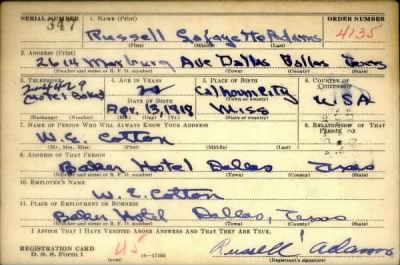 SERIAL NUMBER 1. NAME (Print) ORDER NUMBER
347 Russell Lafayette Adams 4135
(First) (Middle) (Last)
2. ADDRESS (Print)
2614 Ave Dallas Dallas Texas
(Number and street or R. F. D. number) (Town) (County) (State)
3. TELEPHONE 4. AGE IN YEARS 5. PLACE OF BIRTH 6. COUNTRY OF CITIZENSHIP
Calhoun City
DATE OF BIRTH
Apr. 1918 Miss USA
(Exchange) (Number) (Mo.) (Day) (Yr.) (State or country)
7. NAME OF PERSON WHO WILL ALWAYS KNOW YOUR ADDRESS 8. RELATIONSHIP OF THAT PERSON
W. E. Cotton
(Mr., Mrs., Miss) (First) (Middle) (Last)
9. ADDRESS OF THAT PERSON
Baker Hotel Dallas Texas
(Number and street or R. F. D. number) (Town) (County) (State)
10. EMPLOYER'S NAME
W. E. Cotton
11. PLACE OF EMPLOYMENT OR BUSINESS
Baker Hotel Dallas, Texas
(Number and street or R. F. D. number) (Town) (County) (State)
I AFFIRM THAT I HAVE VERIFIED ABOVE ANSWERS AND THAT THEY ARE TRUE.
REGISTRATION CARD 45 Russell Adams
D. S. S. Form 1 16-17105